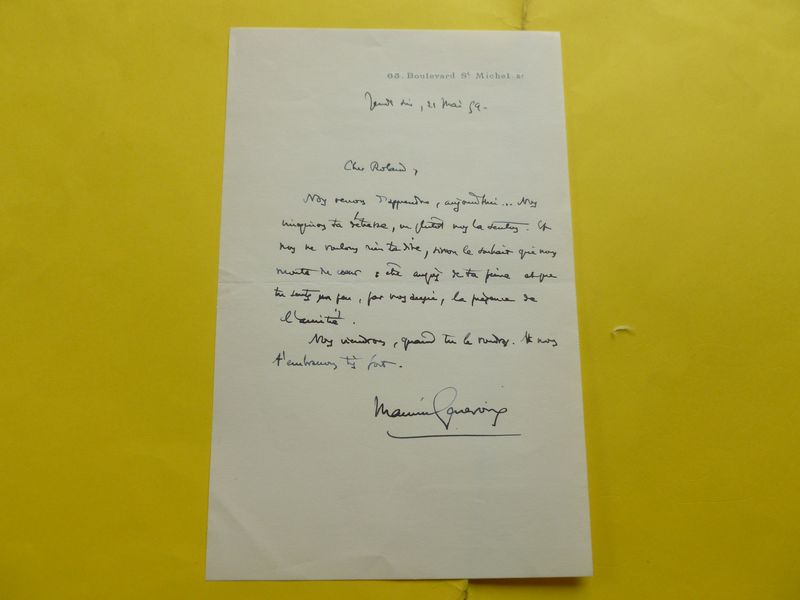 63. Boulevard St Michel
Jeudi soir, 21 Mai 59.
Cher Roland,
Nous venons d'apprendre, aujourd'hui... Nous
imaginons ta détresse, ou plutôt nous la sentons. Et
nous ne voulons rien te dire, sinon le souhait que nous
monte du cœur : être auprès de ta peine et que
tu sentes un peu, par nous aussi, la présence de
l'amitié.
Nous viendrons, quand tu le voudras. Et nous
t'embrassons très fort.